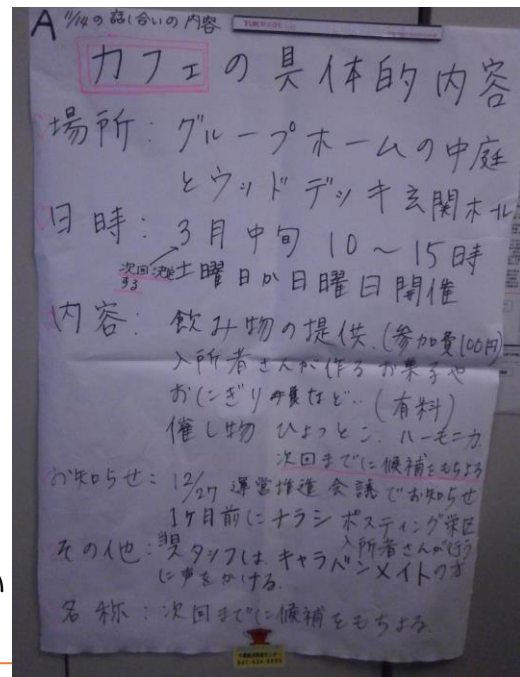 A 11/14の話し合いの内容
カフェの具体的内容
場所: グループホームの中庭
とウッドデッキ玄関ホール
日時: 3月中旬 10~15時
次回決定する
土曜日か日曜日開催
内容: 飲み物の提供.(参加費100円)
入所者さんが作るお菓子や
おにぎり など..(有料)
催し物 ひょっとこ. ハーモニカ
次回までに候補をもちよる
お知らせ: 12/27 運営推進会議でお知らせ
1ヶ月前にチラシ ポスティング
入所者さんが行う
その他: スタッフは、キャラバンメイトの方
に声をかける.
名称: 次回までに候補をもちよる.
い